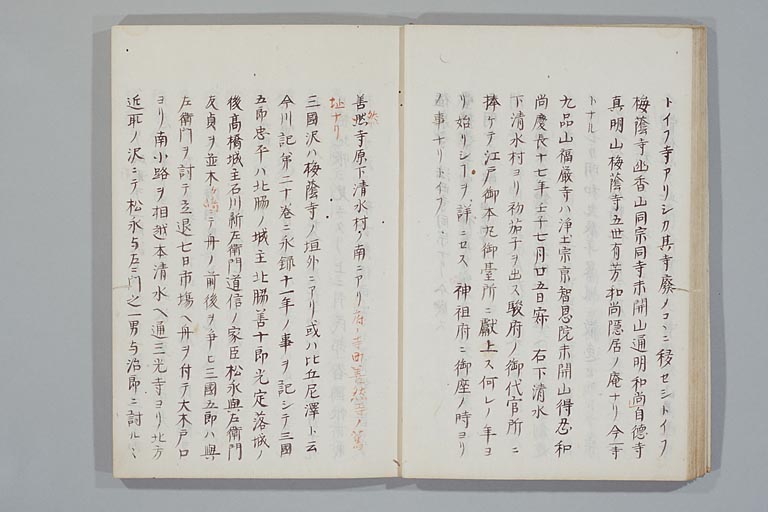 トイフ寺アリシカ其寺廃ノコヽニ移セシトイフ
梅蔭寺 幽香山同宗同寺末開山通明和尚自徳寺
真明山梅蔭寺五世有芳和尚隠居ノ庵ナリ今一寺
トナル
九品山福厳寺ハ浄土宗京智恩院末開山得忍和
尚慶長十七年壬子七月廿五日寂 石下清水
下清水村ヨリ初茄子ヲ出ス駿府ノ御代官所ニ
捧ケテ江戸御本丸御臺所ニ獻上ス何レノ年ヨ
リ始リシ一ヲ詳ニセス 神祖府ニ御座ノ時ヨリ
ノ事ナリトイフ
善然寺原下清水村ノ南ニアリ府寺町善然寺ノ舊
址ナリ
三國沢ハ梅蔭寺ノ垣外ニアリ或ハ比丘尼澤ト云
今川記第二十巻ニ永録十一年ノ事ヲ記シテ三國
五郎忠平ハ北脇ノ城主北脇善十郎光定落城ノ
後高橋城主石川新左衛門道信ノ家臣松永與左衛門
友貞ヲ並木ノ嶋ニテ舟ノ前後ヲ争ヒ三國五郎ハ與
左衛門ヲ討テ立退七日市場ヘ舟ヲ付テ大木戸口
ヨリ南小路ヲ相越本清水ヘ通三光寺ヨリ北方
近所ノ沢ニテ松永与左衛門之一男与治郎ニ討ルヽ